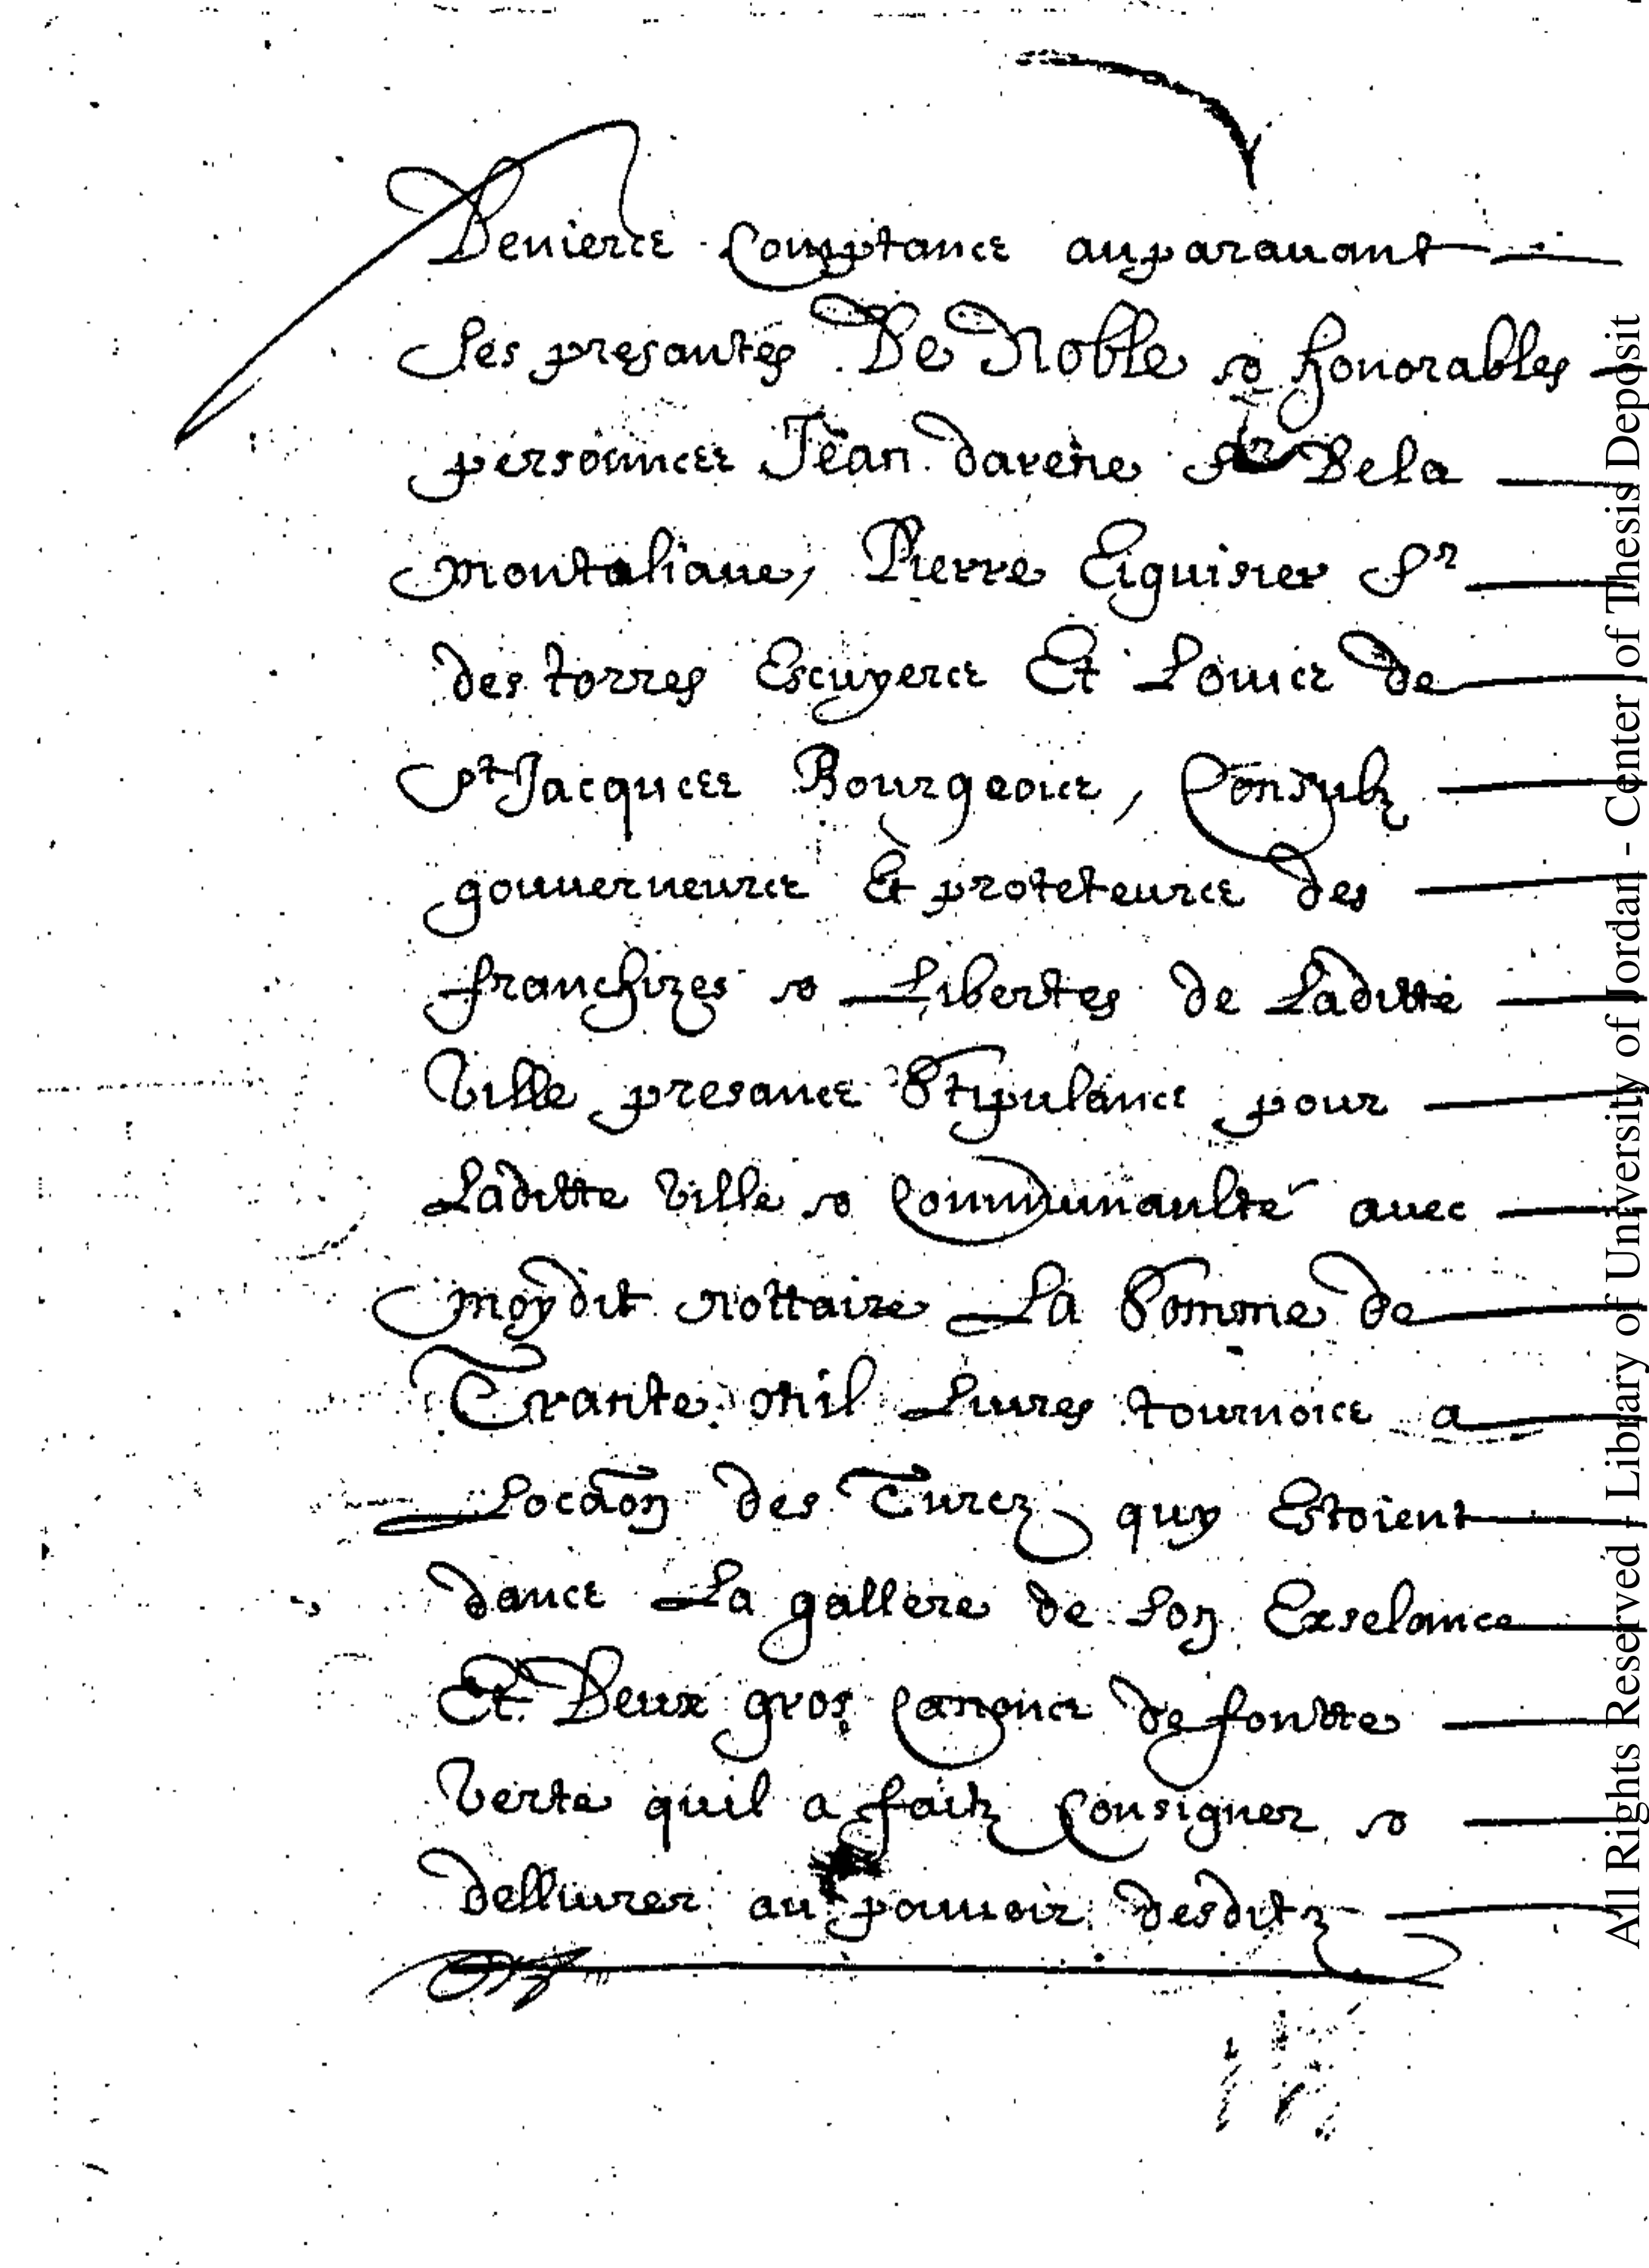 Deniers Comptans auparauant
Ses presantes De Noble & honorables
personnes Jean davene Sr Dela
montaliane, Pierre Eiguisier Sr
des torres Escuyers Et Louis de
St Jacques Bourgeois, Consulz
gouuerneurs Et proteteurs des
franchizes & Libertes de Laditte
Ville presans Stipulans pour
Laditte Ville & Communaulté avec
moy dit nottaire La Somme de
Trante mil Liures tournois a
Locaõn des Turcz quy Estoient
dans La gallere de Son Exselance
Et Deux gros Canons de fontte
Verte quil a faitz Consigner &
delliurer au pouuoir desditz
All Rights Reserved - Library of University of Jordan - Center of Thesis Deposit